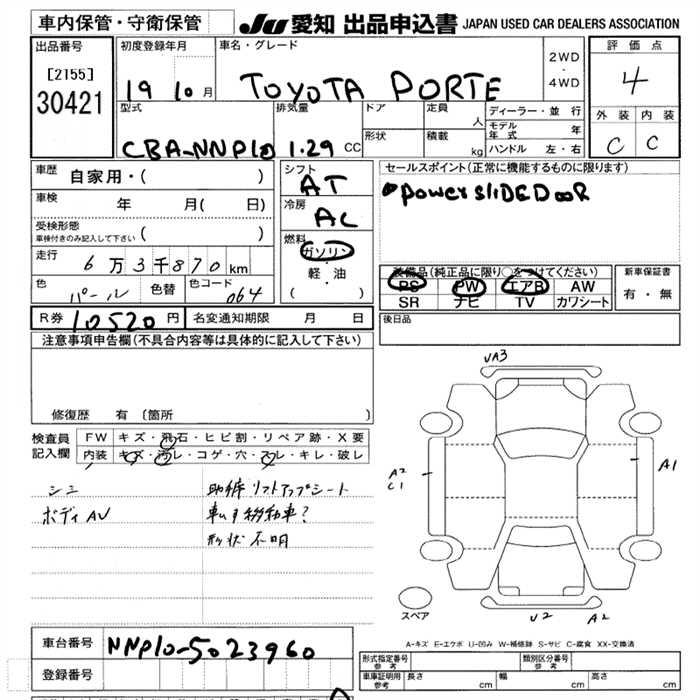 車内保管・守衛保管
JU 愛知 出品申込書 JAPAN USED CAR DEALERS ASSOCIATION
出品番号
[2155]
30421
初度登録年月
19 10月
車名・グレード
TOYOTA PORTE
2WD
・
4WD
評価点
4
外装 内装
C C
型式
CBA-NNP10
排気量
1.29 CC
ドア
形状
定員
人
積載
kg
ディーラー・並行
モデル年式 年
ハンドル 左・右
車歴
自家用・( )
車検
年 月( 日)
受検形態
車検付きのみ記入して下さい ( )
走行
6万3千870km
色
パール
色替
色コード
064
シフト
AT
冷房
AC
燃料
ガソリン
・
軽・油
( )
セールスポイント(正常に機能するものに限ります)
●power sliDEDooR
装備品(純正品に限り○をつけてください)
PS PW エアB AW
SR ナビ TV カワシート
新車保証書
有・無
R券 10520円
名変通知期限 月 日
後日品
注意事項申告欄(不具合内容等は具体的に記入して下さい)
修復歴 有 〔箇所 〕
検査員
記入欄
FW キズ・飛石・ヒビ割・リペア跡・X要
内装 キズ・汚レ・コゲ・穴・スレ・キレ・破レ
シミ
ボディAV
助手席 リフトアップシート
車いす移動車?
形状不明
UA3
A2
C1
A1
スペア
U2 A2
A-キズ E-エクボ U-凹み W-補修跡 S-サビ C-腐食 XX-交換済
車台番号
NNP10-5023960
登録番号
形式指定番号
参考
類別区分番号
参考
車庫証明用
参考
長さ cm
幅 cm
高さ cm